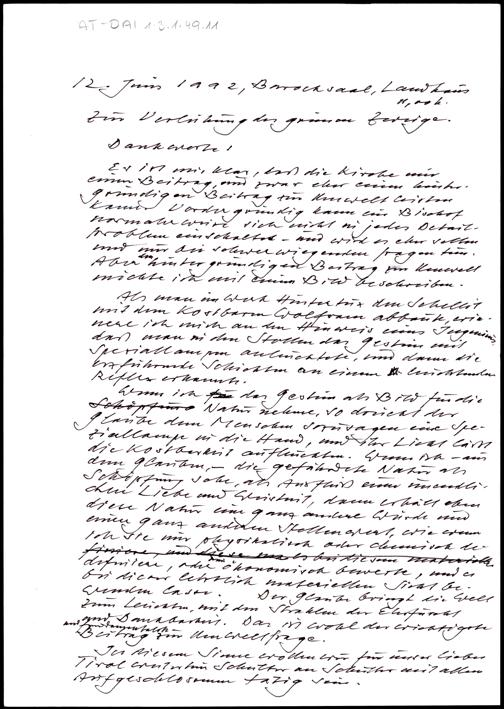 AT-DAI 1.2.1.49.11
12. Juni 1992, Barocksaal, Landhaus
Zur Verleihung des grünen Zweiges.
Dankworte!
Es ist mir klar, daß die Kirche nur
einen Beitrag, und zwar eher einen hinter-
gründigen Beitrag zur Umwelt leisten
kann. Vordergründig kann ein Bischof
normalerweise sich nicht in jedes Detail-
problem einschalten - und wird es eher selten
und nur bei schwerwiegenden Fragen tun.
Aber den hintergründigen Beitrag zur Umwelt
möchte ich mit einem Bild beschreiben.
Als man im Werk den Scheelit
mit dem kostbaren Wolfram abbaute, erin-
nere ich mich an den Hinweis eines Ingenieurs,
daß man in den Stollen das Gestein mit
Speziallampen anleuchtete, und dann die
erzführende Schichten an einem leuchtenden
erkannte.
Wenn ich das Gestein als Bild für die
Schöpfung Natur nehme, so drückt der
Glaube dem Menschen sozusagen eine Spe-
ziallampe in die Hand, und ihr Licht lässt
die Kostbarkeit aufleuchten. Wenn ich - aus
dem Glauben, - die gefährdete Natur als
Schöpfung sehe, als Ausfluß einer unendli-
chen Liebe und Weisheit, dann erhält eben
diese Natur eine ganz andere Würde und
einen ganz anderen Stellenwert, wie wenn
ich sie nur physikalisch oder chemisch de-
finiere, und es bei diesem materiell
definiere, oder ökonomisch bewerte, und es
bei dieser letztlich materiellen Sicht be-
wenden lasse. Der Glaube bringt die Welt
zum Leuchten, mit den Strahlen der Ehrfurcht
und Dankbarkeit. Das ist wohl der wichtigste
Beitrag zur Umweltfrage.
In diesem Sinne wollen wir für unser liebes
Tirol weiterhin Schulter an Schulter mit allen
Aufgeschlossenen tätig sein.